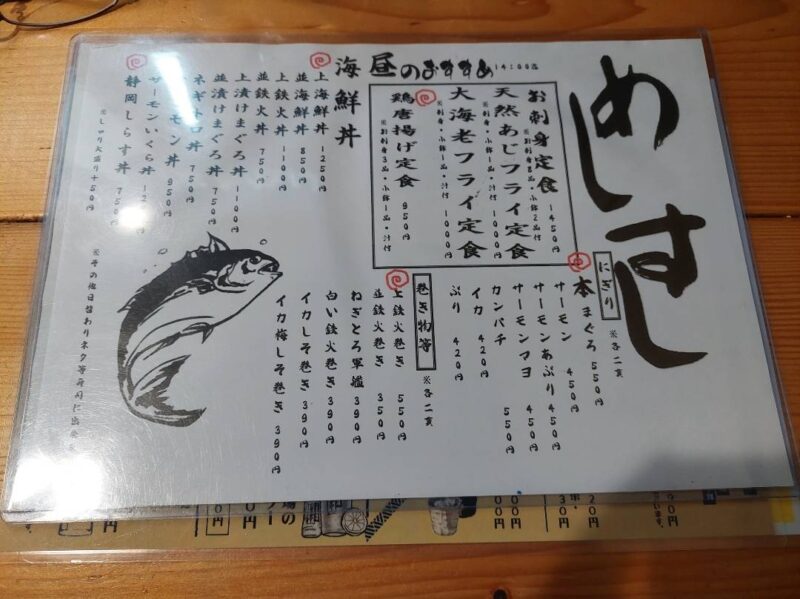 めし
すし
昼のおすすめ 14:00迄
お刺身定食 1450円
※お刺身8品・小鉢2品付
天然あじフライ定食 1000円
※お刺身・小鉢1品・汁付
大海老フライ定食 1000円
※お刺身・小鉢1品・汁付
鶏唐揚げ定食 950円
※お刺身3品・小鉢1品・汁付
海鮮丼
上海鮮丼 1250円
並海鮮丼 850円
上鉄火丼 1100円
並鉄火丼 750円
上漬けまぐろ丼 1100円
並漬けまぐろ丼 750円
ネギトロ丼 750円
サーモン丼 950円
サーモンいくら丼
静岡しらす丼 750円
※しゃり大盛り+50円
にぎり ※各二貫
本まぐろ 550円
サーモン 450円
サーモンあぶり 450円
サーモンマヨ 450円
カンパチ 550円
イカ 420円
ぶり 420円
巻き物等 ※各二貫
上鉄火巻き 550円
並鉄火巻き 350円
ねぎとろ軍艦 390円
白い鉄火巻き 390円
イカしそ巻き 390円
イカ梅しそ巻き 390円
※その他日替わりネタ等